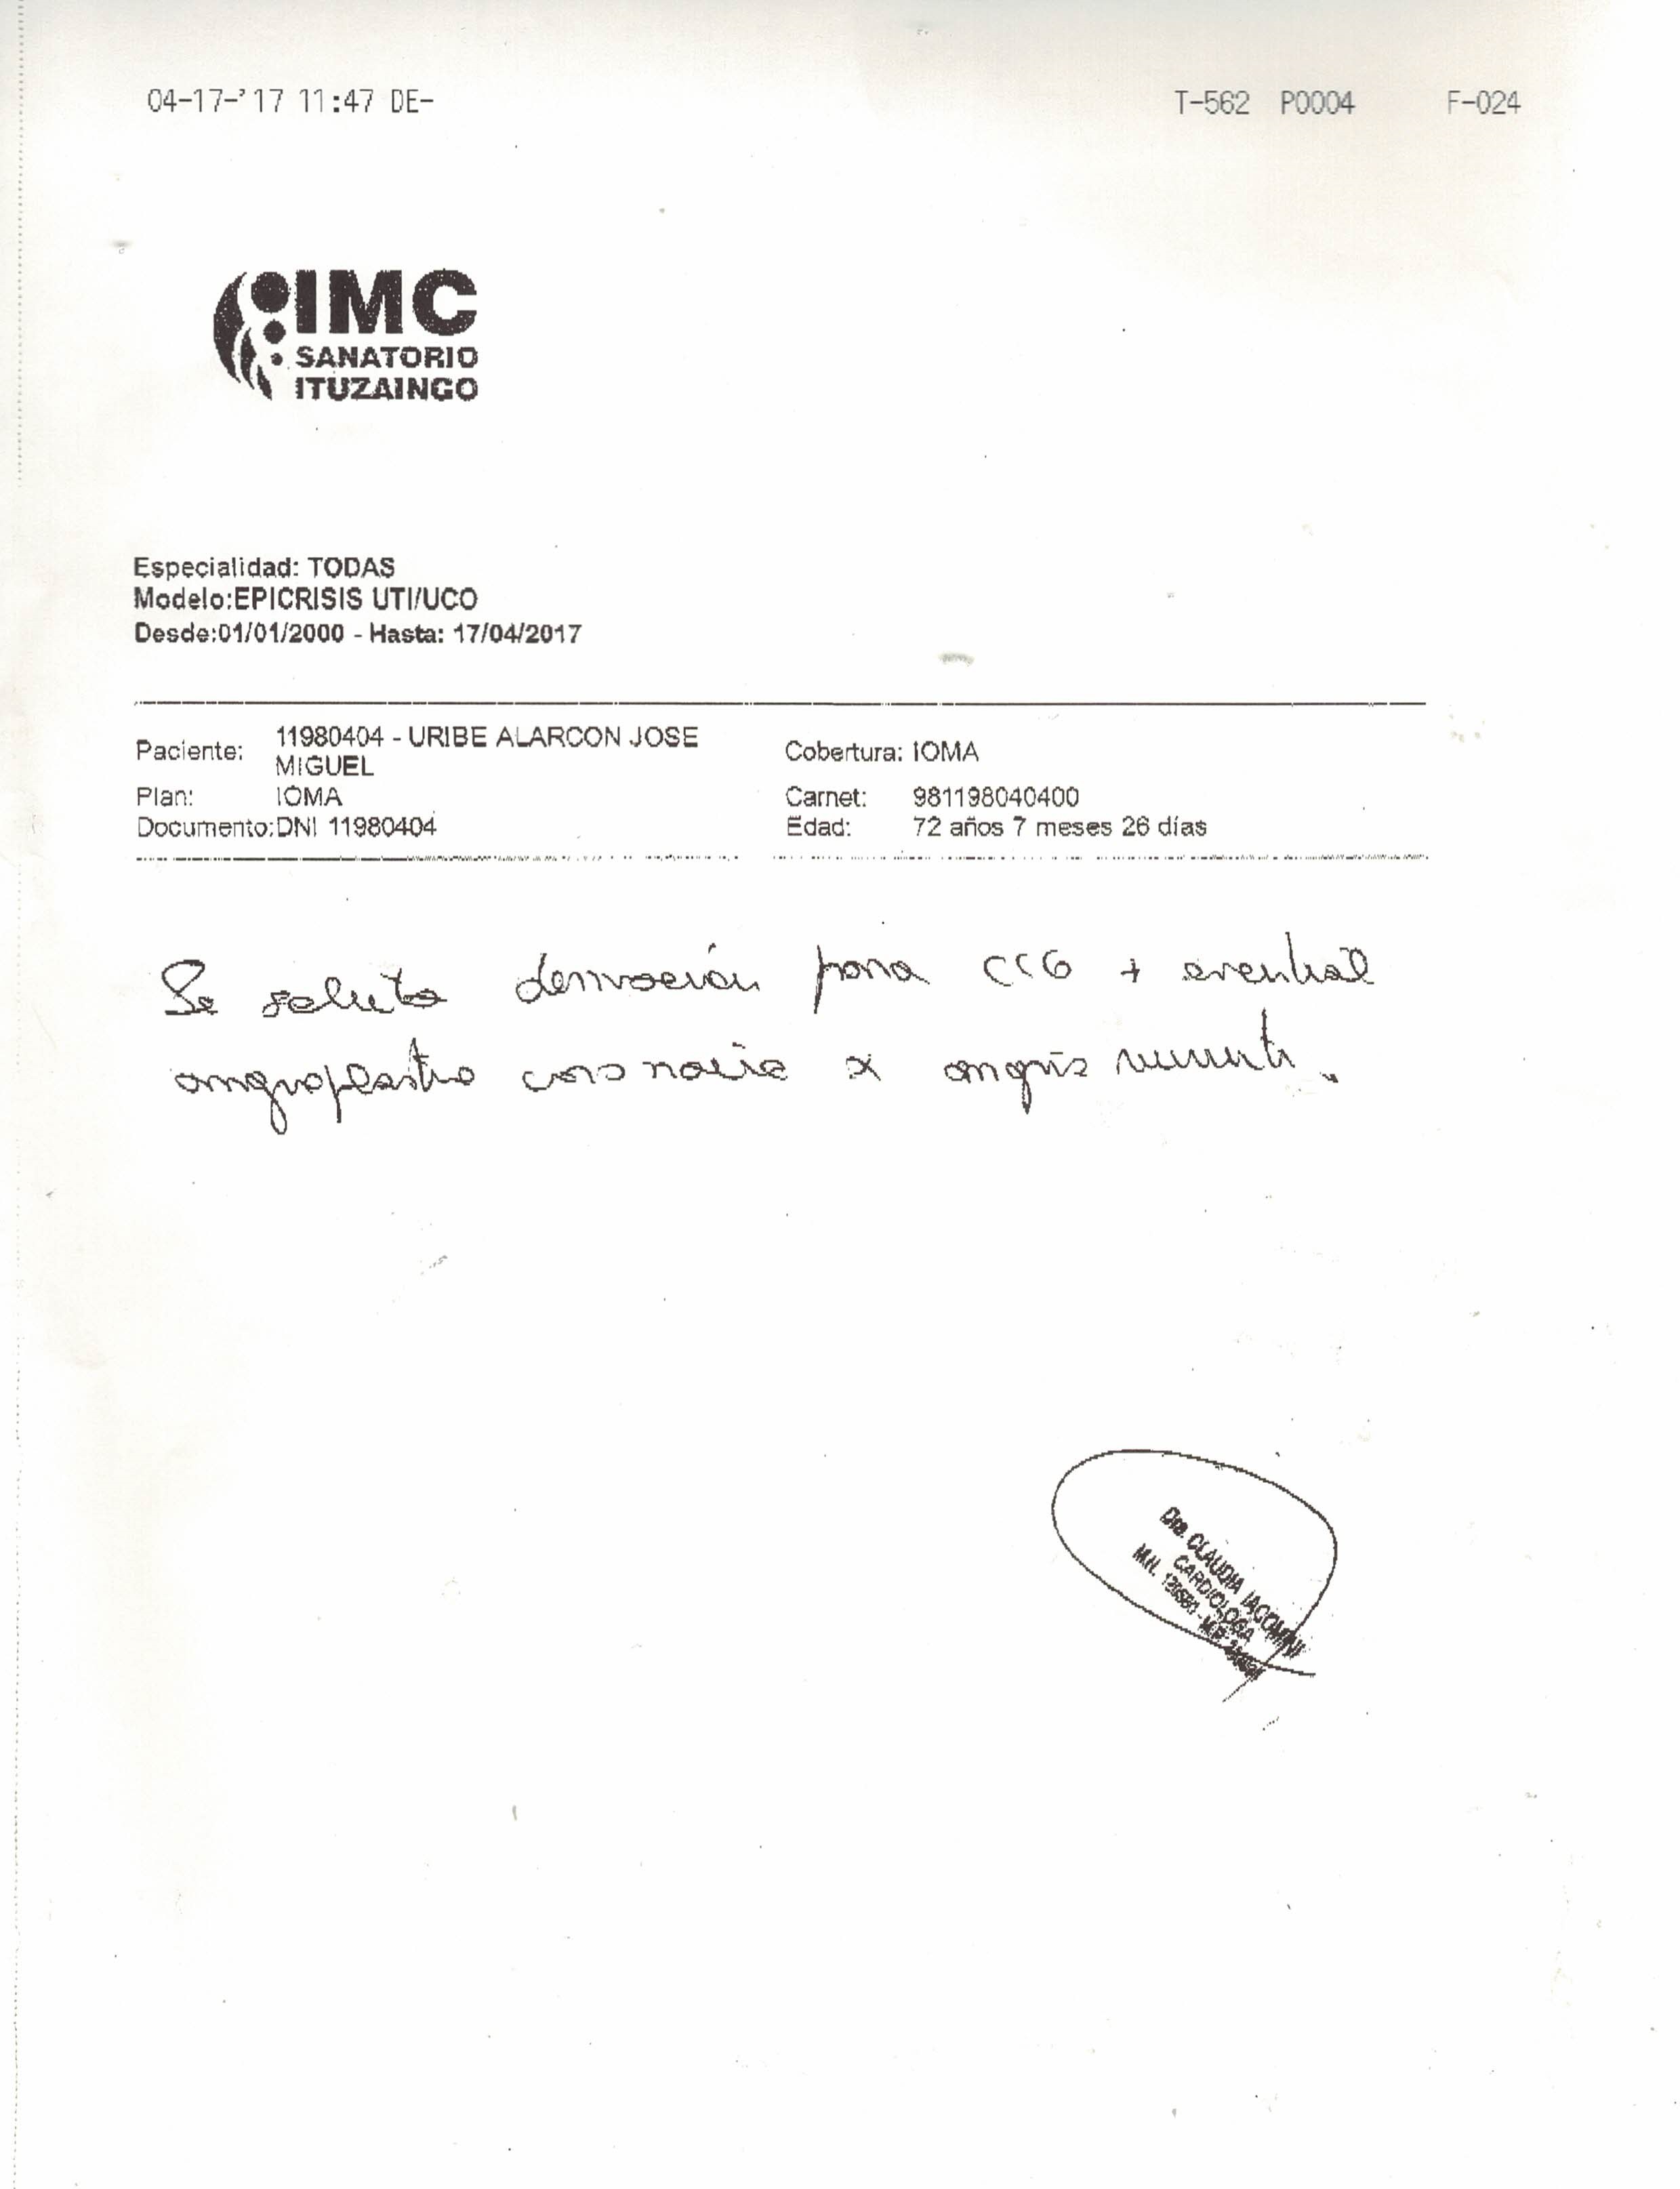 04-17-'17 11:47 DE- T-562 P0004 F-024
IMC
SANATORIO
ITUZAINGO
Especialidad: TODAS
Modelo:EPICRISIS UTI/UCO
Desde:01/01/2000 - Hasta: 17/04/2017
Paciente: 11980404 - URIBE ALARCON JOSE MIGUEL
Cobertura: IOMA
Plan: IOMA
Carnet: 981198040400
Documento:DNI 11980404
Edad: 72 años 7 meses 26 días
Se solicita derivación para CCG + eventual
angioplastia coronaria x angina
Dra. CLAUDIA
CARDIOLOGA
M.N.